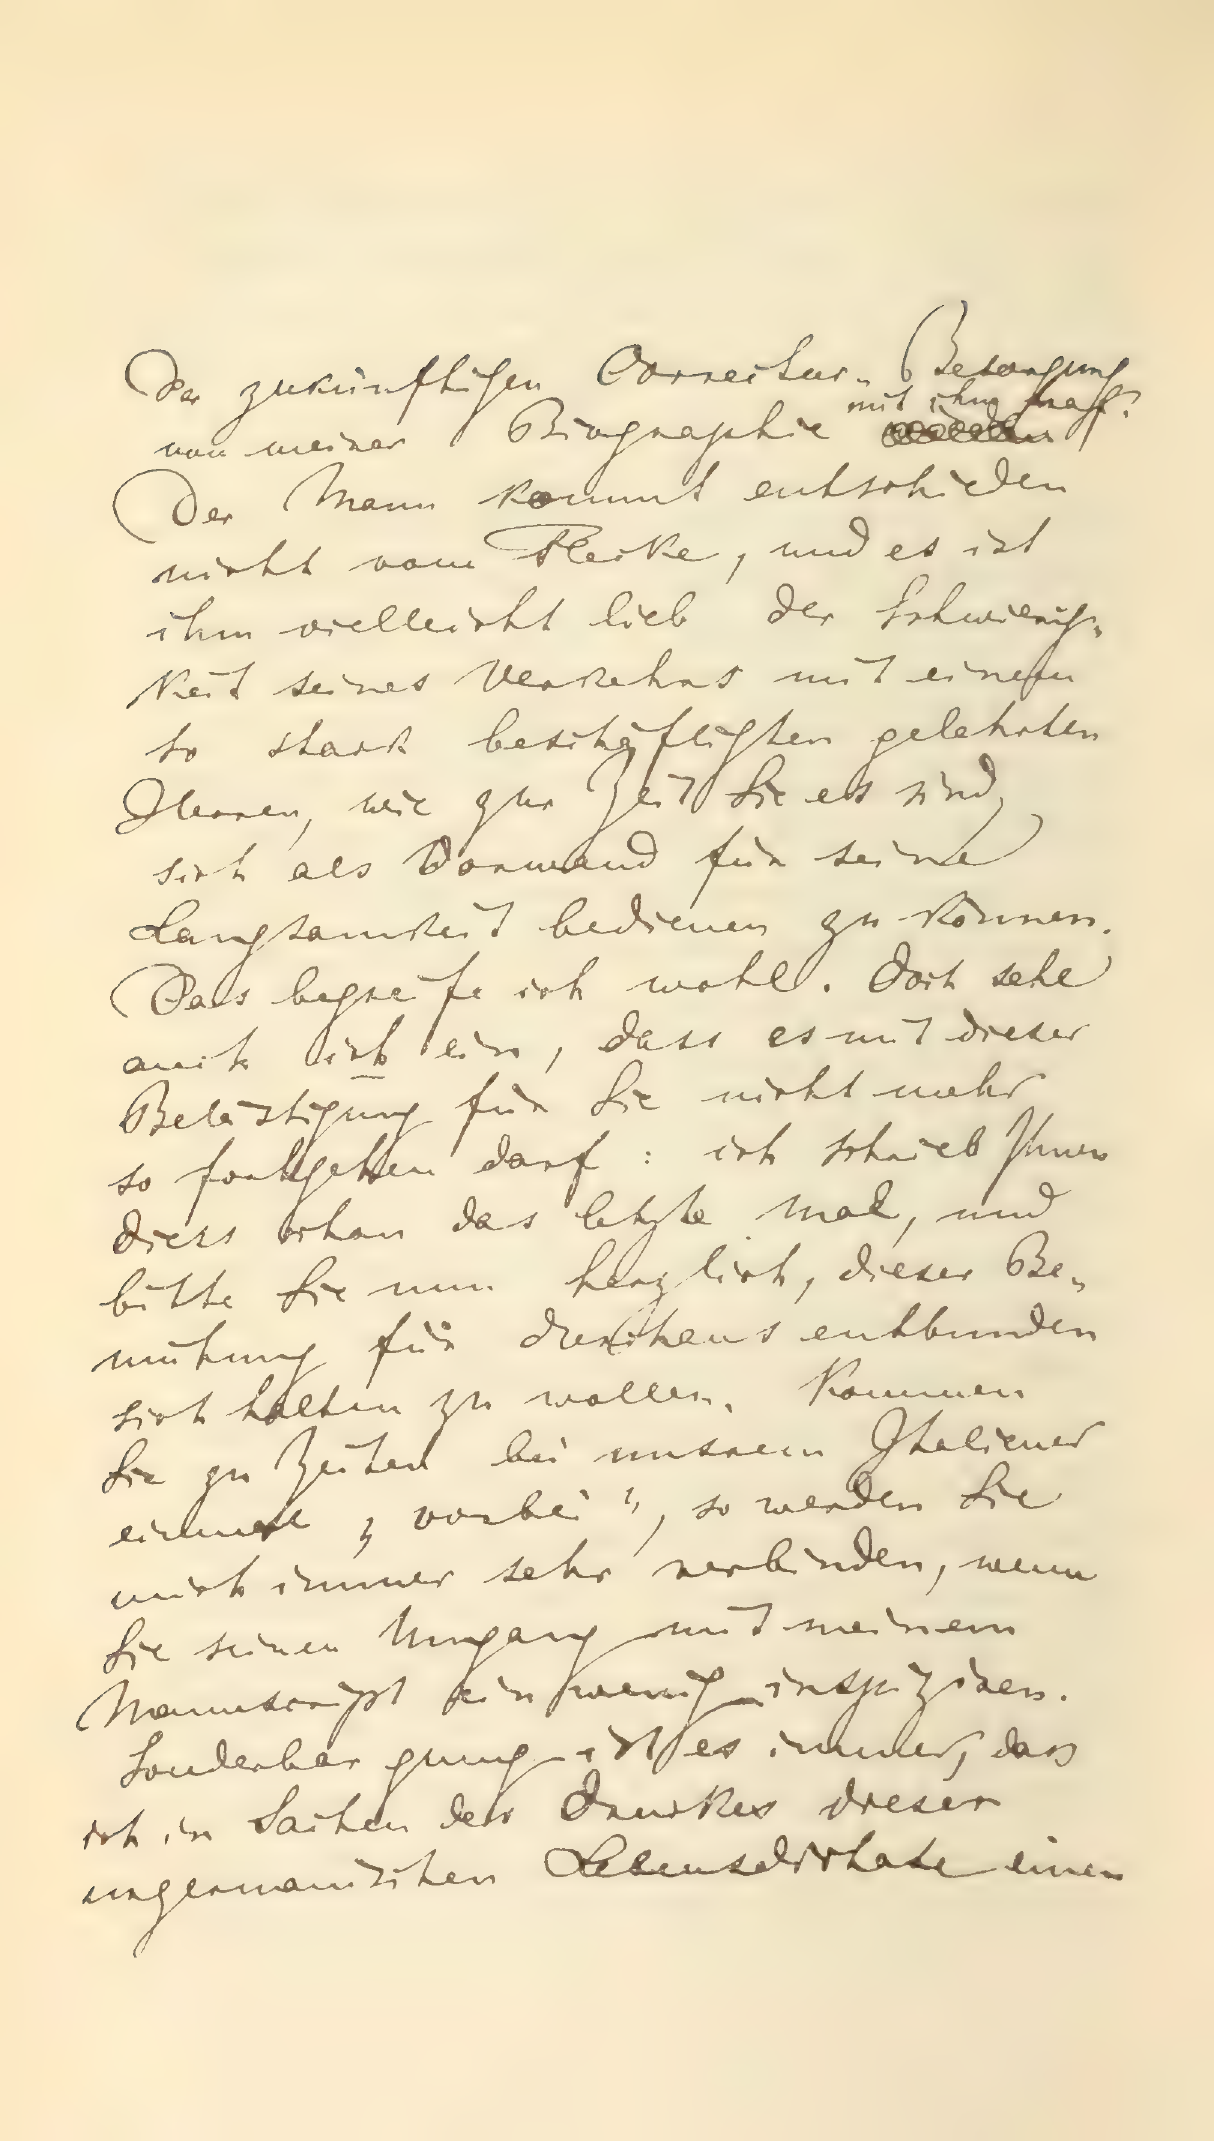 der zukünftigen Correctur-Besorgung
mit ihm traf?
von meiner Biographie
Der Mann kommt entschieden
nicht vom Flecke, und es ist
ihm vielleicht lieb der Schwierig-
keit seines Verkehrs mit einem
so stark beschäftigten gelehrten
Herren, wie zur Zeit Sie es sind,
sich als Vorwand für seine
Langsamkeit bedienen zu können.
Das begreife ich wohl. Doch sehe
auch ich ein, dass es mit dieser
Belästigung für Sie nicht mehr
so fortgehen darf: ich schrieb Ihnen
diess schon das letzte Mal, und
bitte Sie nun herzlich, dieser Be-
mühung für durchaus entbunden
sich halten zu wollen. Kommen
Sie zu Zeiten bei unsrem Italiener
einmal „vorbei“, so werden Sie
mich immer sehr verbinden, wenn
Sie seinen Umgang mit meinem
Manuscript ein wenig inspiziren.
Sonderbar genug ist es immer, dass
ich in Sachen des Druckes dieser
urgermanischen Lebensdictate einen